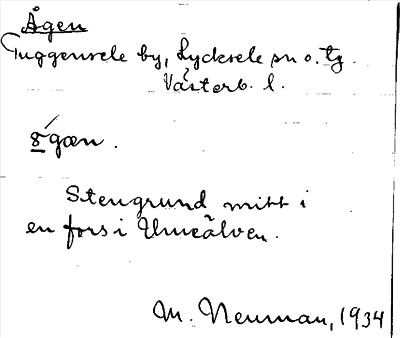 Ågen
Tuggensele by, Lycksele sn o. tg
Västerb. l.
8́gæn.
Stengrund mitt i
en fors i Umeälven.
M. Neuman, 1934